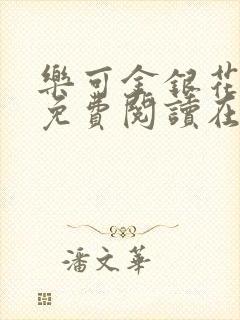 樂可金銀花
免費閱讀在
潘文華